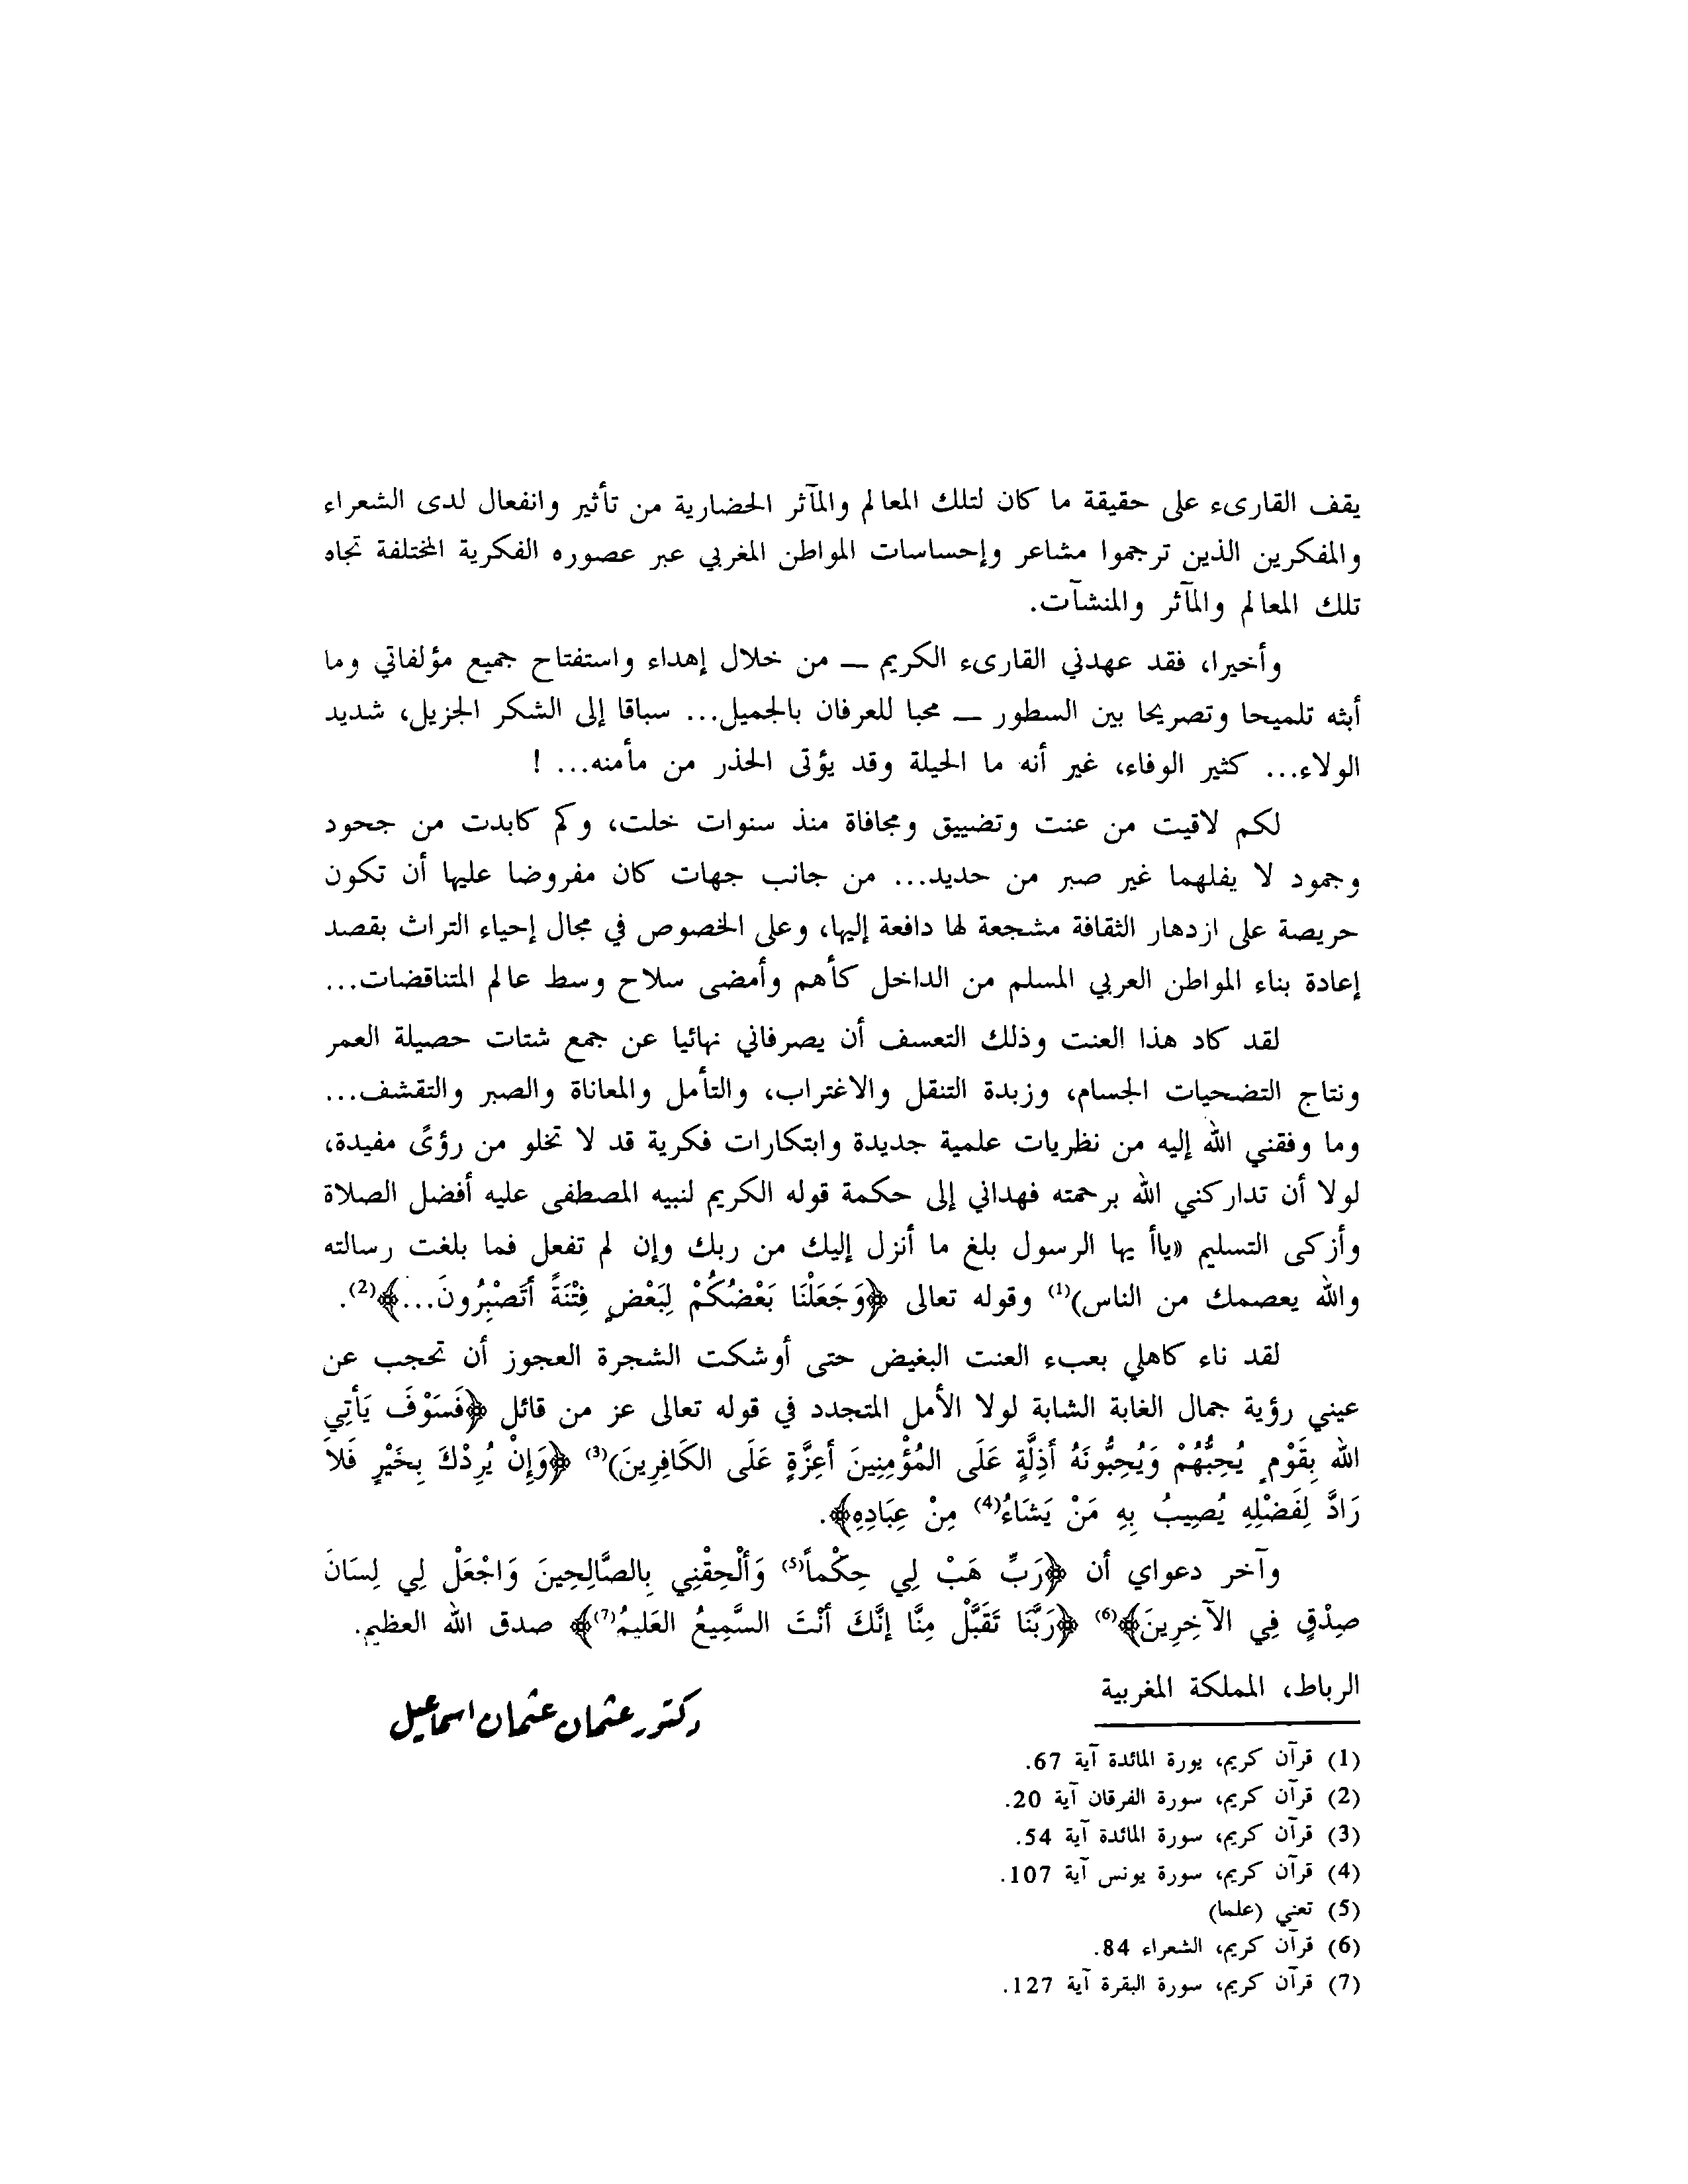 يقف القارىء على حقيقة ما كان لتلك المعالم والمآثر الحضارية من تأثير وانفعال لدى الشعراء
والمفكرين الذين ترجموا مشاعر وإحساسات المواطن المغربي عبر عصوره الفكرية المختلفة تجاه
تلك المعالم والمآثر والمنشآت.
وأخيرا، فقد عهدني القارىء الكريم — من خلال إهداء واستفتاح جميع مؤلفاتي وما
أبثه تلميحا وتصريحا بين السطور — محبا للعرفان بالجميل... سباقا إلى الشكر الجزيل، شديد
الولاء... كثير الوفاء، غير أنه ما الحيلة وقد يؤتى الحذر من مأمنه... !
لكم لاقيت من عنت وتضييق ومجافاة منذ سنوات خلت، وكم كابدت من جحود
وجمود لا يفلهما غير صبر من حديد... من جانب جهات كان مفروضا عليها أن تكون
حريصة على ازدهار الثقافة مشجعة لها دافعة إليها، وعلى الخصوص في مجال إحياء التراث بقصد
إعادة بناء المواطن العربي المسلم من الداخل كأهم وأمضى سلاح وسط عالم المتناقضات...
لقد كاد هذا العنت وذلك التعسف أن يصرفاني نهائيا عن جمع شتات حصيلة العمر
ونتاج التضحيات الجسام، وزبدة التنقل والاغتراب، والتأمل والمعاناة والصبر والتقشف...
وما وفقني الله إليه من نظريات علمية جديدة وابتكارات فكرية قد لا تخلو من رؤىً مفيدة،
لولا أن تداركني الله برحمته فهداني إلى حكمة قوله الكريم لنبيه المصطفى عليه أفضل الصلاة
وأزكى التسليم «ياأ يها الرسول بلغ ما أنزل إليك من ربك وإن لم تفعل فما بلغت رسالته
والله يعصمك من الناس)(1) وقوله تعالى ﴿وَجَعَلْنَا بَعْضُكُمْ لِبَعْضٍ فِتْنَةً أَتَصْبِرُونَ...﴾(2).
لقد ناء كاهلي بعبء العنت البغيض حتى أوشكت الشجرة العجوز أن تحجب عن
عيني رؤية جمال الغابة الشابة لولا الأمل المتجدد في قوله تعالى عز من قائل ﴿فَسَوْفَ يَأتِي
الله بِقَوْمٍ يُحِبُّهُمْ وَيُحِبُّونَهُ أذِلَّةٍ عَلَى المُؤْمِنِينَ أعِزَّةٍ عَلَى الكَافِرِينَ)(3) ﴿وَإِنْ يُرِدْكَ بِخَيْرٍ فَلاَ
رَادَّ لِفَضْلِهِ يُصِيبُ بِهِ مَنْ يَشَاءُ(4) مِنْ عِبَادِهِ﴾.
وآخر دعواي أن ﴿رَبِّ هَبْ لِي حِكْماً(5) وَألْحِقْنِي بِالصَّالِحِينَ وَاجْعَلْ لِي لِسَانَ
صِدْقٍ فِي الآخِرِينَ﴾(6) ﴿رَبَّنَا تَقَبَّلْ مِنَّا إنَّكَ أنْتَ السَّمِيعُ العَلِيمُ(7)﴾ صدق الله العظيم.
الرباط، المملكة المغربية
دكتور عثمان عثمان اسماعيل
(1) قرآن كريم، يورة المائدة آية 67.
(2) قرآن كريم، سورة الفرقان آية 20.
(3) قرآن كريم، سورة المائدة آية 54.
(4) قرآن كريم، سورة يونس آية 107.
(5) تعني (علما)
(6) قرآن كريم، الشعراء 84.
(7) قرآن كريم، سورة البقرة آية 127.